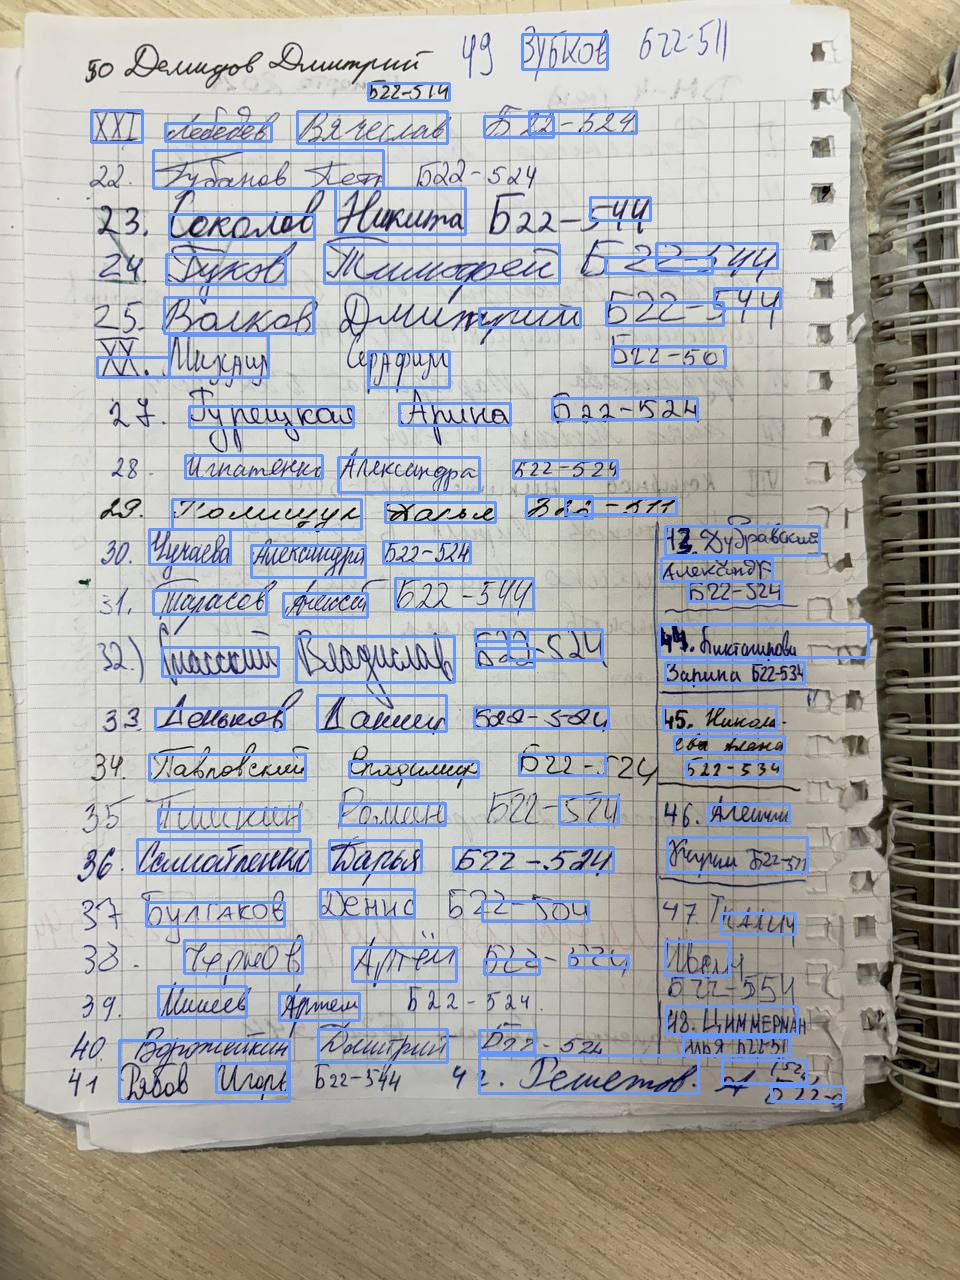 49 Зубков Б22-511
50 Демидов Дмитрий
Б22-514
XXI Лебедев Вячеслав Б22-524
22. Губанов Петр Б22-524
23. Соколов Никита Б22-544
24. Гуков Тимофей Б22-544
25. Волков Дмитрий Б22-544
XX. Михаил Серафим Б22-50
27. Турецкая Арина Б22-524
28. Игнатенко Александра Б22-524
29. Полищук Дарья Б22-511
30. Чучаева Александра Б22-524
31. Тарасов Алексей Б22-544
32.) Спасский Владислав Б22-524
33. Деньков Даниил Б22-524
34. Павловский Владимир Б22-524
35 Пишкин Роман Б22-524
36. Самойленко Дарья Б22-524
37 Булгаков Денис Б22-504
38. Чернов Артём Б22-524
39. Мишев Артем Б22-524.
40. Ворожейкин Дмитрий Б22-524
41 Рябов Игорь Б22-544 42. Решетов.
Б22-
13. Дубравский
Александр
Б22-524
44.
Зарина Б22-534
45. Никола-
ева Алена
Б22-534
46. Алешин
Кирилл Б22-511
47 Ткалич
Иван
Б22-554
48. Циммерман
Илья Б22-511